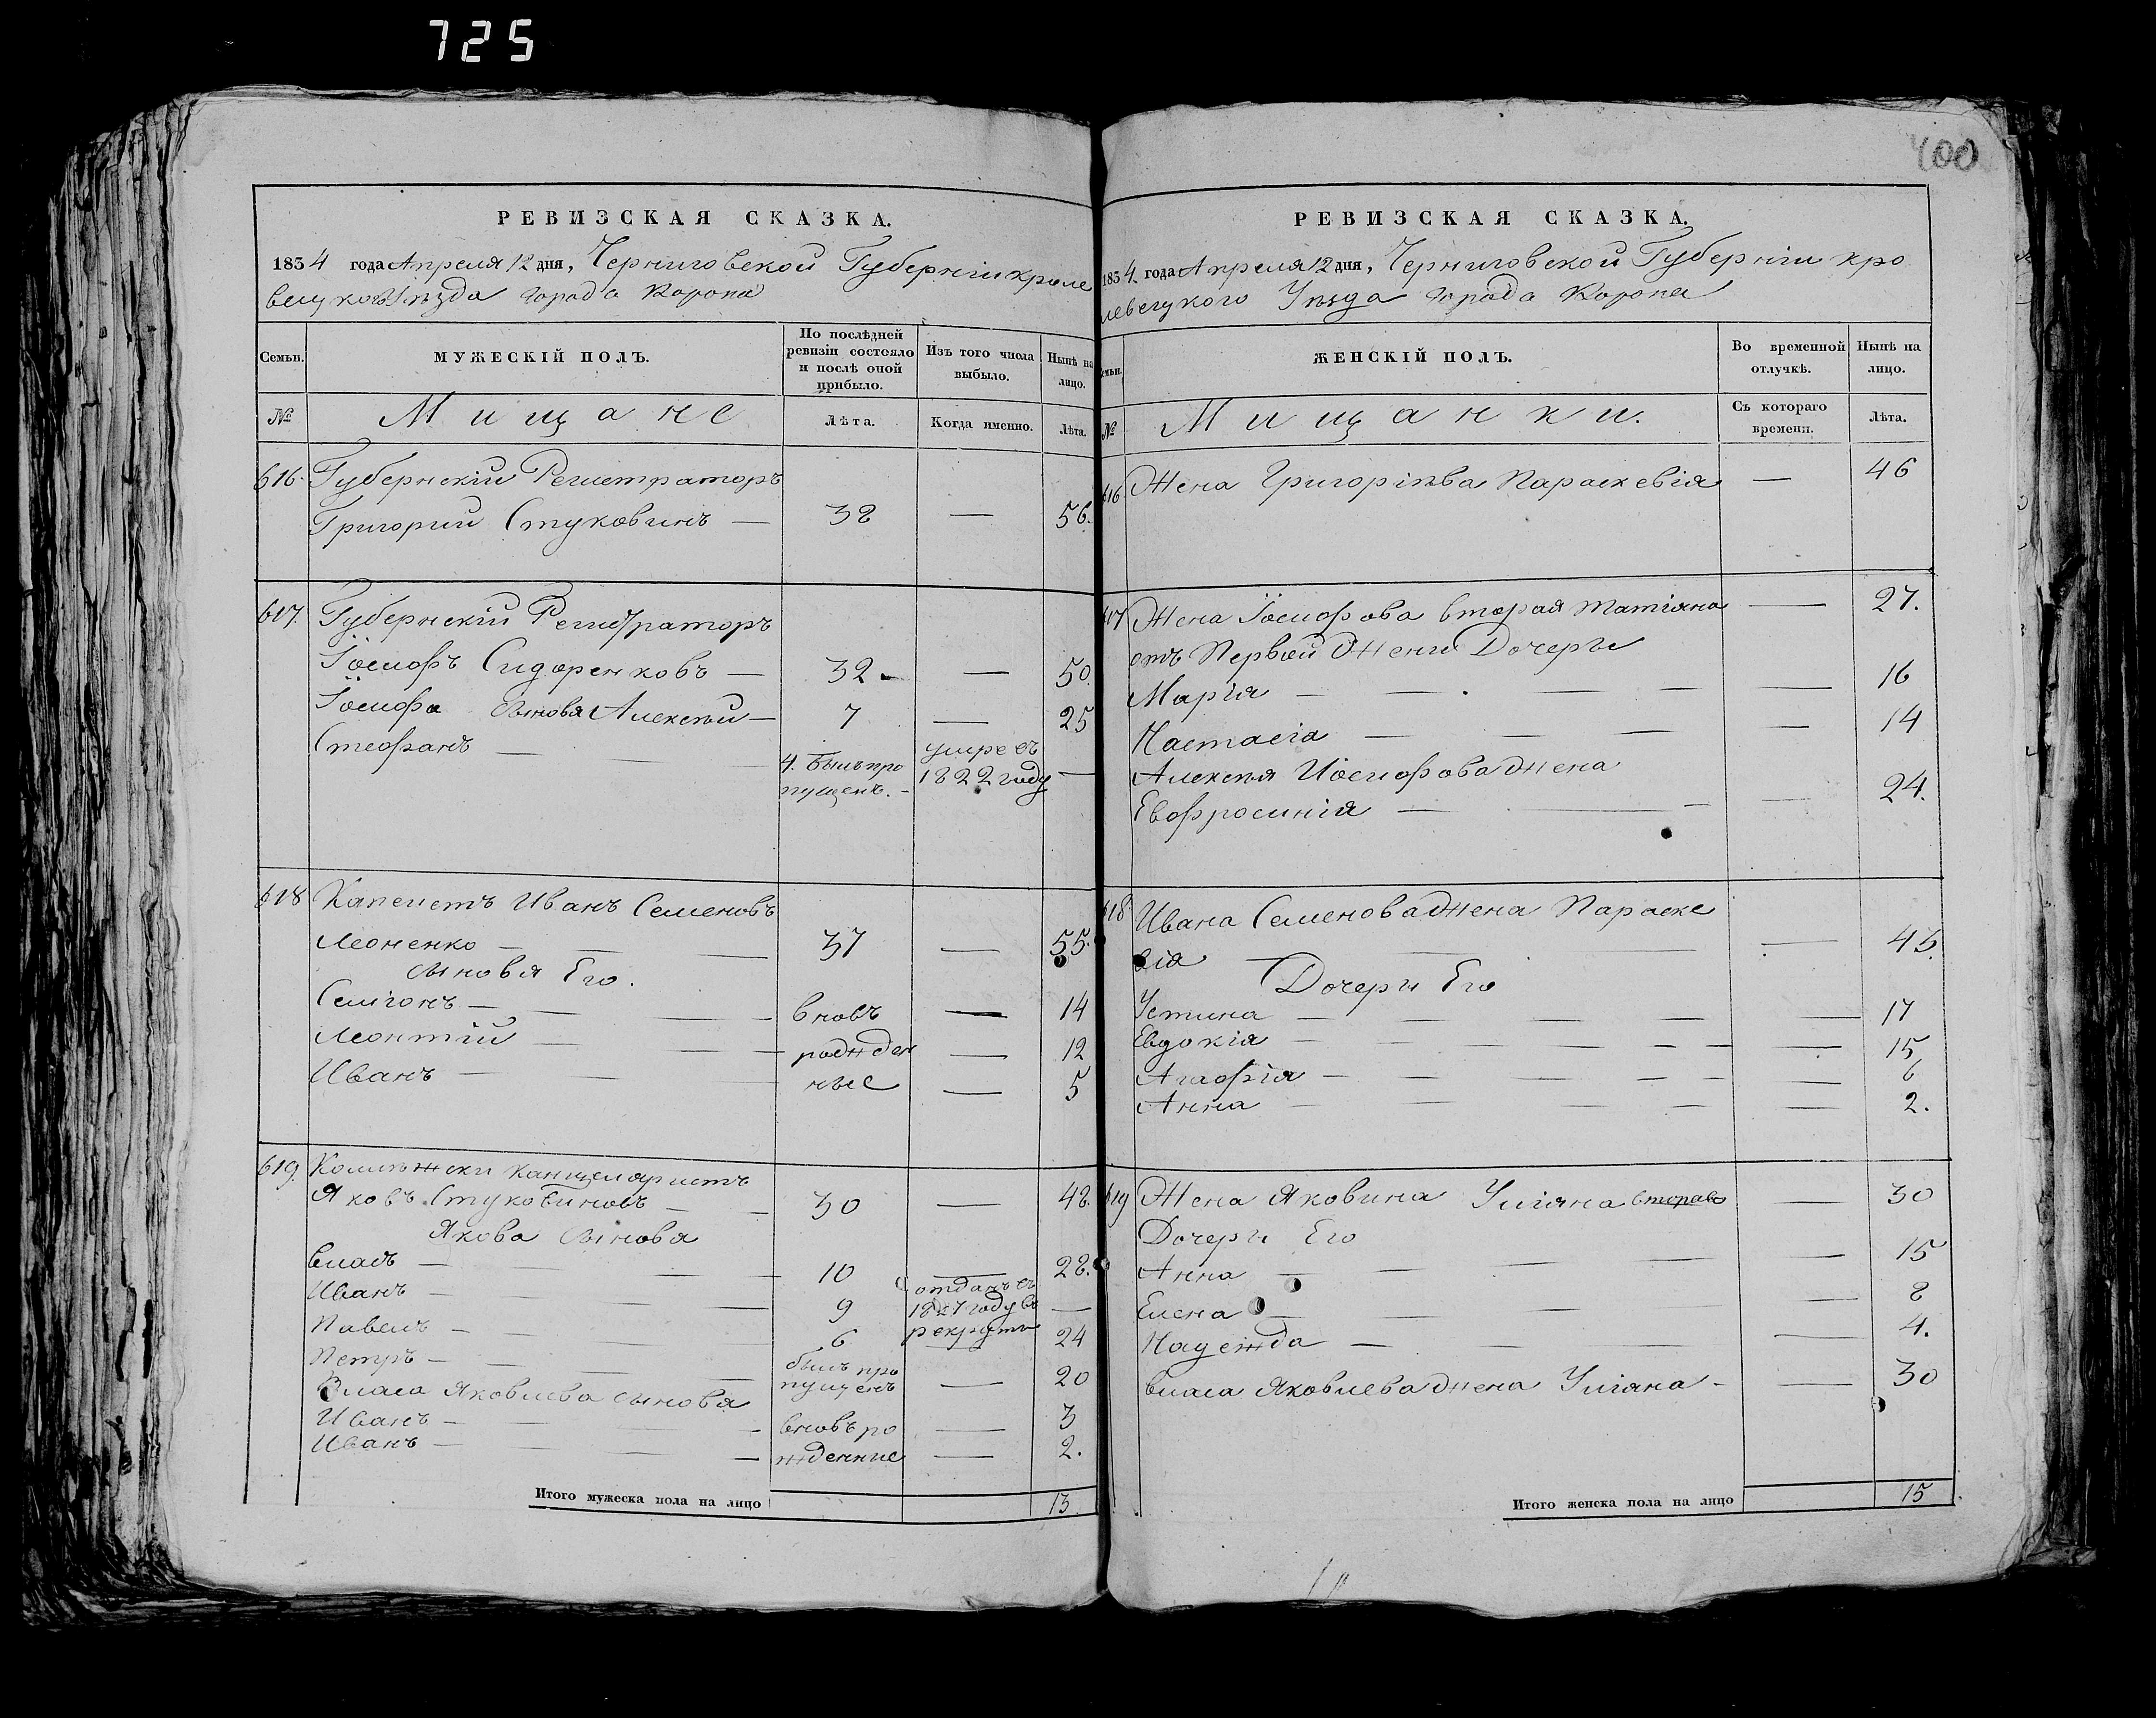 725
400
РЕВИЗСКАЯ СКАЗКА.
1834 года Апреля 12 дня, Черниговской Губерніи кроле
вецкого Уѣзда города Коропа
Семьи.
МУЖЕСКІЙ ПОЛЪ.
По послѣдней ревизіи состояло и послѣ оной прибыло.
Изъ того числа выбыло.
Нынѣ на лицо.
№
Мищане
Лѣта.
Когда именно.
Лѣта.
616. Губернскій Регистраторъ
Григорий Стуковинъ — 38 — 56.
617. Губернскій Регистраторъ
Іосифъ Сидоренковъ — 32 — 50.
Іосифа Сыновя Алексѣй — 7 — 25
Стефанъ — 4. былъ про
пущенъ. — умре въ
1822 году —
618 Капеистъ Иванъ Семеновъ
Леоненко — 37 — 55.
Сыновя Его.
Семіонъ — вновъ — 14
Леонтій — рожден — 12
Иванъ — ные — 5
619. Колежски Канцеляристъ
Яковъ Стуковиновъ — 30 — 48.
Якова Сынова
Власъ — 10 — 28.
Иванъ — 9 отданъ въ
1827 году въ
рекруты —
Павелъ — 6 — 24
Петръ — былъ про
пущенъ — 20
Власа Яковлева сынова
Иванъ — вновъ ро — 3
Иванъ — жденние — 2.
Итого мужеска пола на лицо 13
РЕВИЗСКАЯ СКАЗКА.
1834 года Апреля 12 дня, Черниговской Губерніи кро
левецкого Уѣзда города Коропа
ЖЕНСКІЙ ПОЛЪ.
Во временной отлучкѣ.
Нынѣ на лицо.
№
Мищанки.
Съ котораго времени.
Лѣта.
616 Жена Григоріѣва Параскевія — 46
617 Жена Іосифова вторая Татіяна — 27.
отъ Первой Жени Дочери
Марія — 16
Настасія — 14
Алексѣя Иосифова жена
Евфросинія — 24.
618 Ивана Семенова жена Параске
вія — 43.
Дочери Его
Устина — 17
Евдокія — 15
Агафія — 6
Анна — 2.
619 Жена Яковина Уліяна втораю — 30
Дочери Его
Анна — 15
Елена — 8
Надежда — 4.
Власа Яковлева жена Уліяна — 30
Итого женска пола на лицо 15